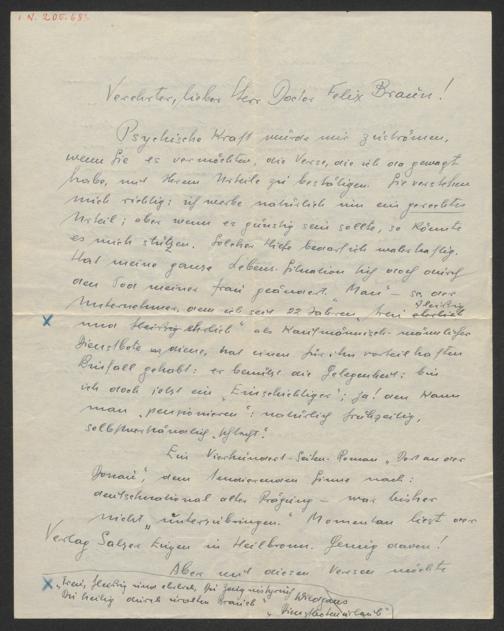 I. N. 205.68
Verehrter, lieber Herr Doctor Felix Braun!
Psychische Kraft würde mir zuströmen,
wenn Sie es vermöchten, die Verse, die ich da gewagt
habe, mit Ihrem Urteile zu bestätigen. Sie verstehen
mich richtig: ich werbe natürlich nur um ein gerechtes
Urteil; aber wenn es günstig sein sollte, so könnte
es mich stützen. Solcher Hilfe bedarf ich wahrhaftig.
Hat meine ganze Lebens-Situation sich doch durch
den Tod meiner Frau geändert. "Man" – so der
Unternehmer, dem ich seit 22 Jahren "treu
fleißig
und ehrlich" als kaufmännisch-männlicher
Dienstbote diene, hat einen für ihn vorteilhaften
Einfall gehabt: er benützt die Gelegenheit: bin
ich doch jetzt ein "Einschichtiger"; ja! den kann
man "pensionieren"; natürlich frühzeitig,
selbstverständlich "schlecht".
Ein Vierhundert-Seiten-Roman "Dort an der
Donau", dem Sinne nach:
deutschnational alter Prägung – war bisher
nicht "unterzubringen." Momentan liegt er
Verlag Salzer Eugen in Heilbronn. Genug davon!
Aber mit diesen Versen möchte
x "Treu, fleißig und ehrlich,
durch uralten Brauch" Wildgans
"Dienstbotenurlaub"